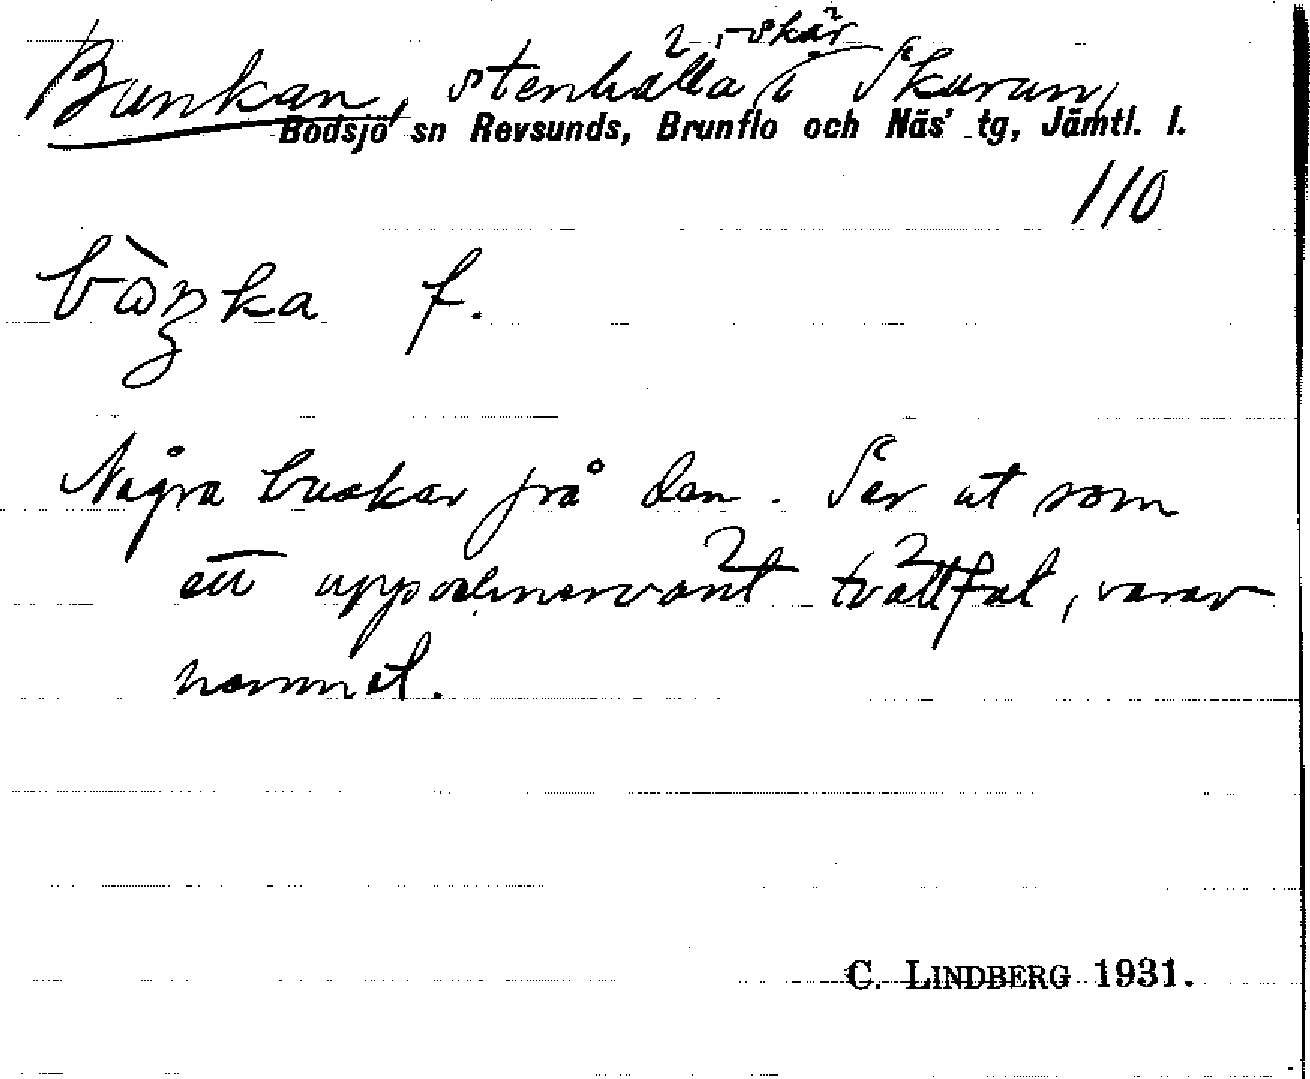 , -skär
Bunkan, stenhälla i Skurun,
Bodsjö sn Revsunds, Brunflo och Näs' tg, Jämtl. l.
110
bòŋka f.
Några buskar på den. Ser ut som
ett uppochnervänt tvättfat, varav
namnet.
C. LINDBERG 1931.